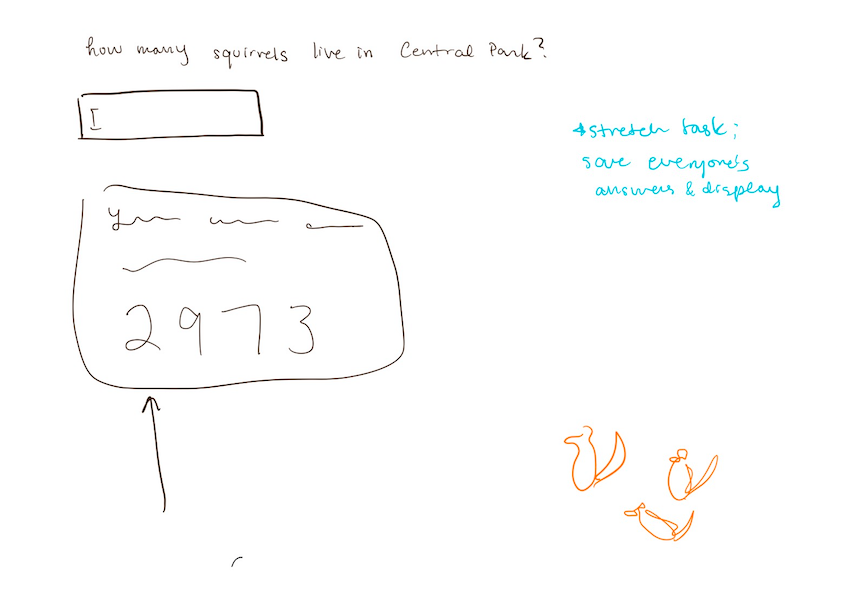 how many squirrels live in Central Park?
I
* stretch task;
save everyone's
answers & display
2973